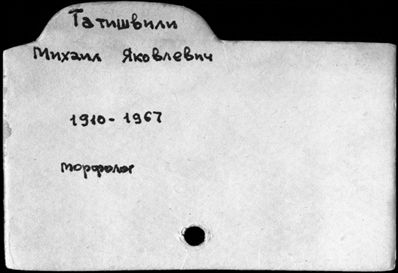 Татишвили
Михаил Яковлевич
1910-1967
морфолог